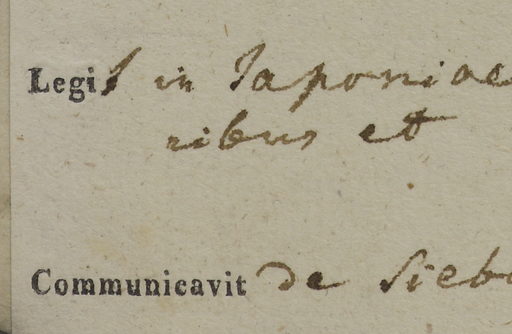 Legit in Japoniae
ribus et
Communicavit de Sieb